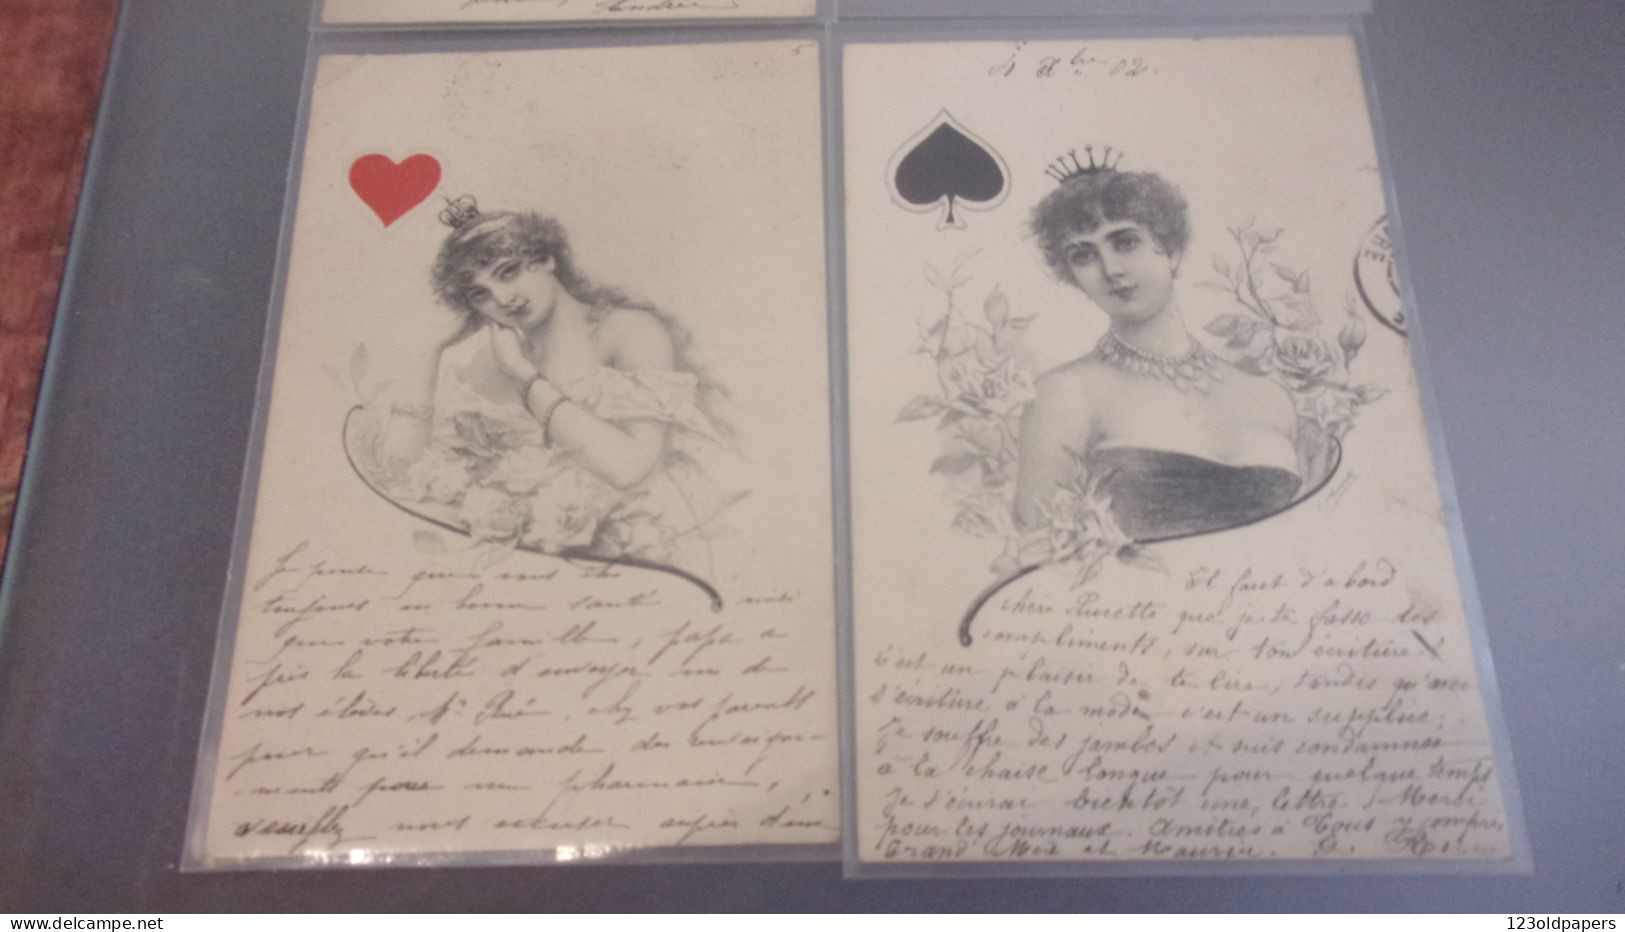 Andrée
5
Je pense que vous êtes
toujours en bonne santé ainsi
que votre famille, papa a
pris la liberté d'envoyer un de
nos élèves, Mr Rué, chez vos parents
pour qu'il demande des renseigne-
ments pour un pharmacien,
veuillez nous excuser auprès d'eux
4 Xbre 02.
Il faut d'abord
chère Lucette que je te fasse des
compliments, sur ton écriture
c'est un plaisir de te lire, tandis qu'avec
l'écriture à la mode c'est un supplice.
Je souffre des jambes et suis condamnée
à la chaise longue pour quelque temps
Je t'écrirai bientôt une lettre. Merci
pour les journaux. Amitiés à Tous y compris
Grand' Mère et Maurice.
123oldpapers
delcampe.net